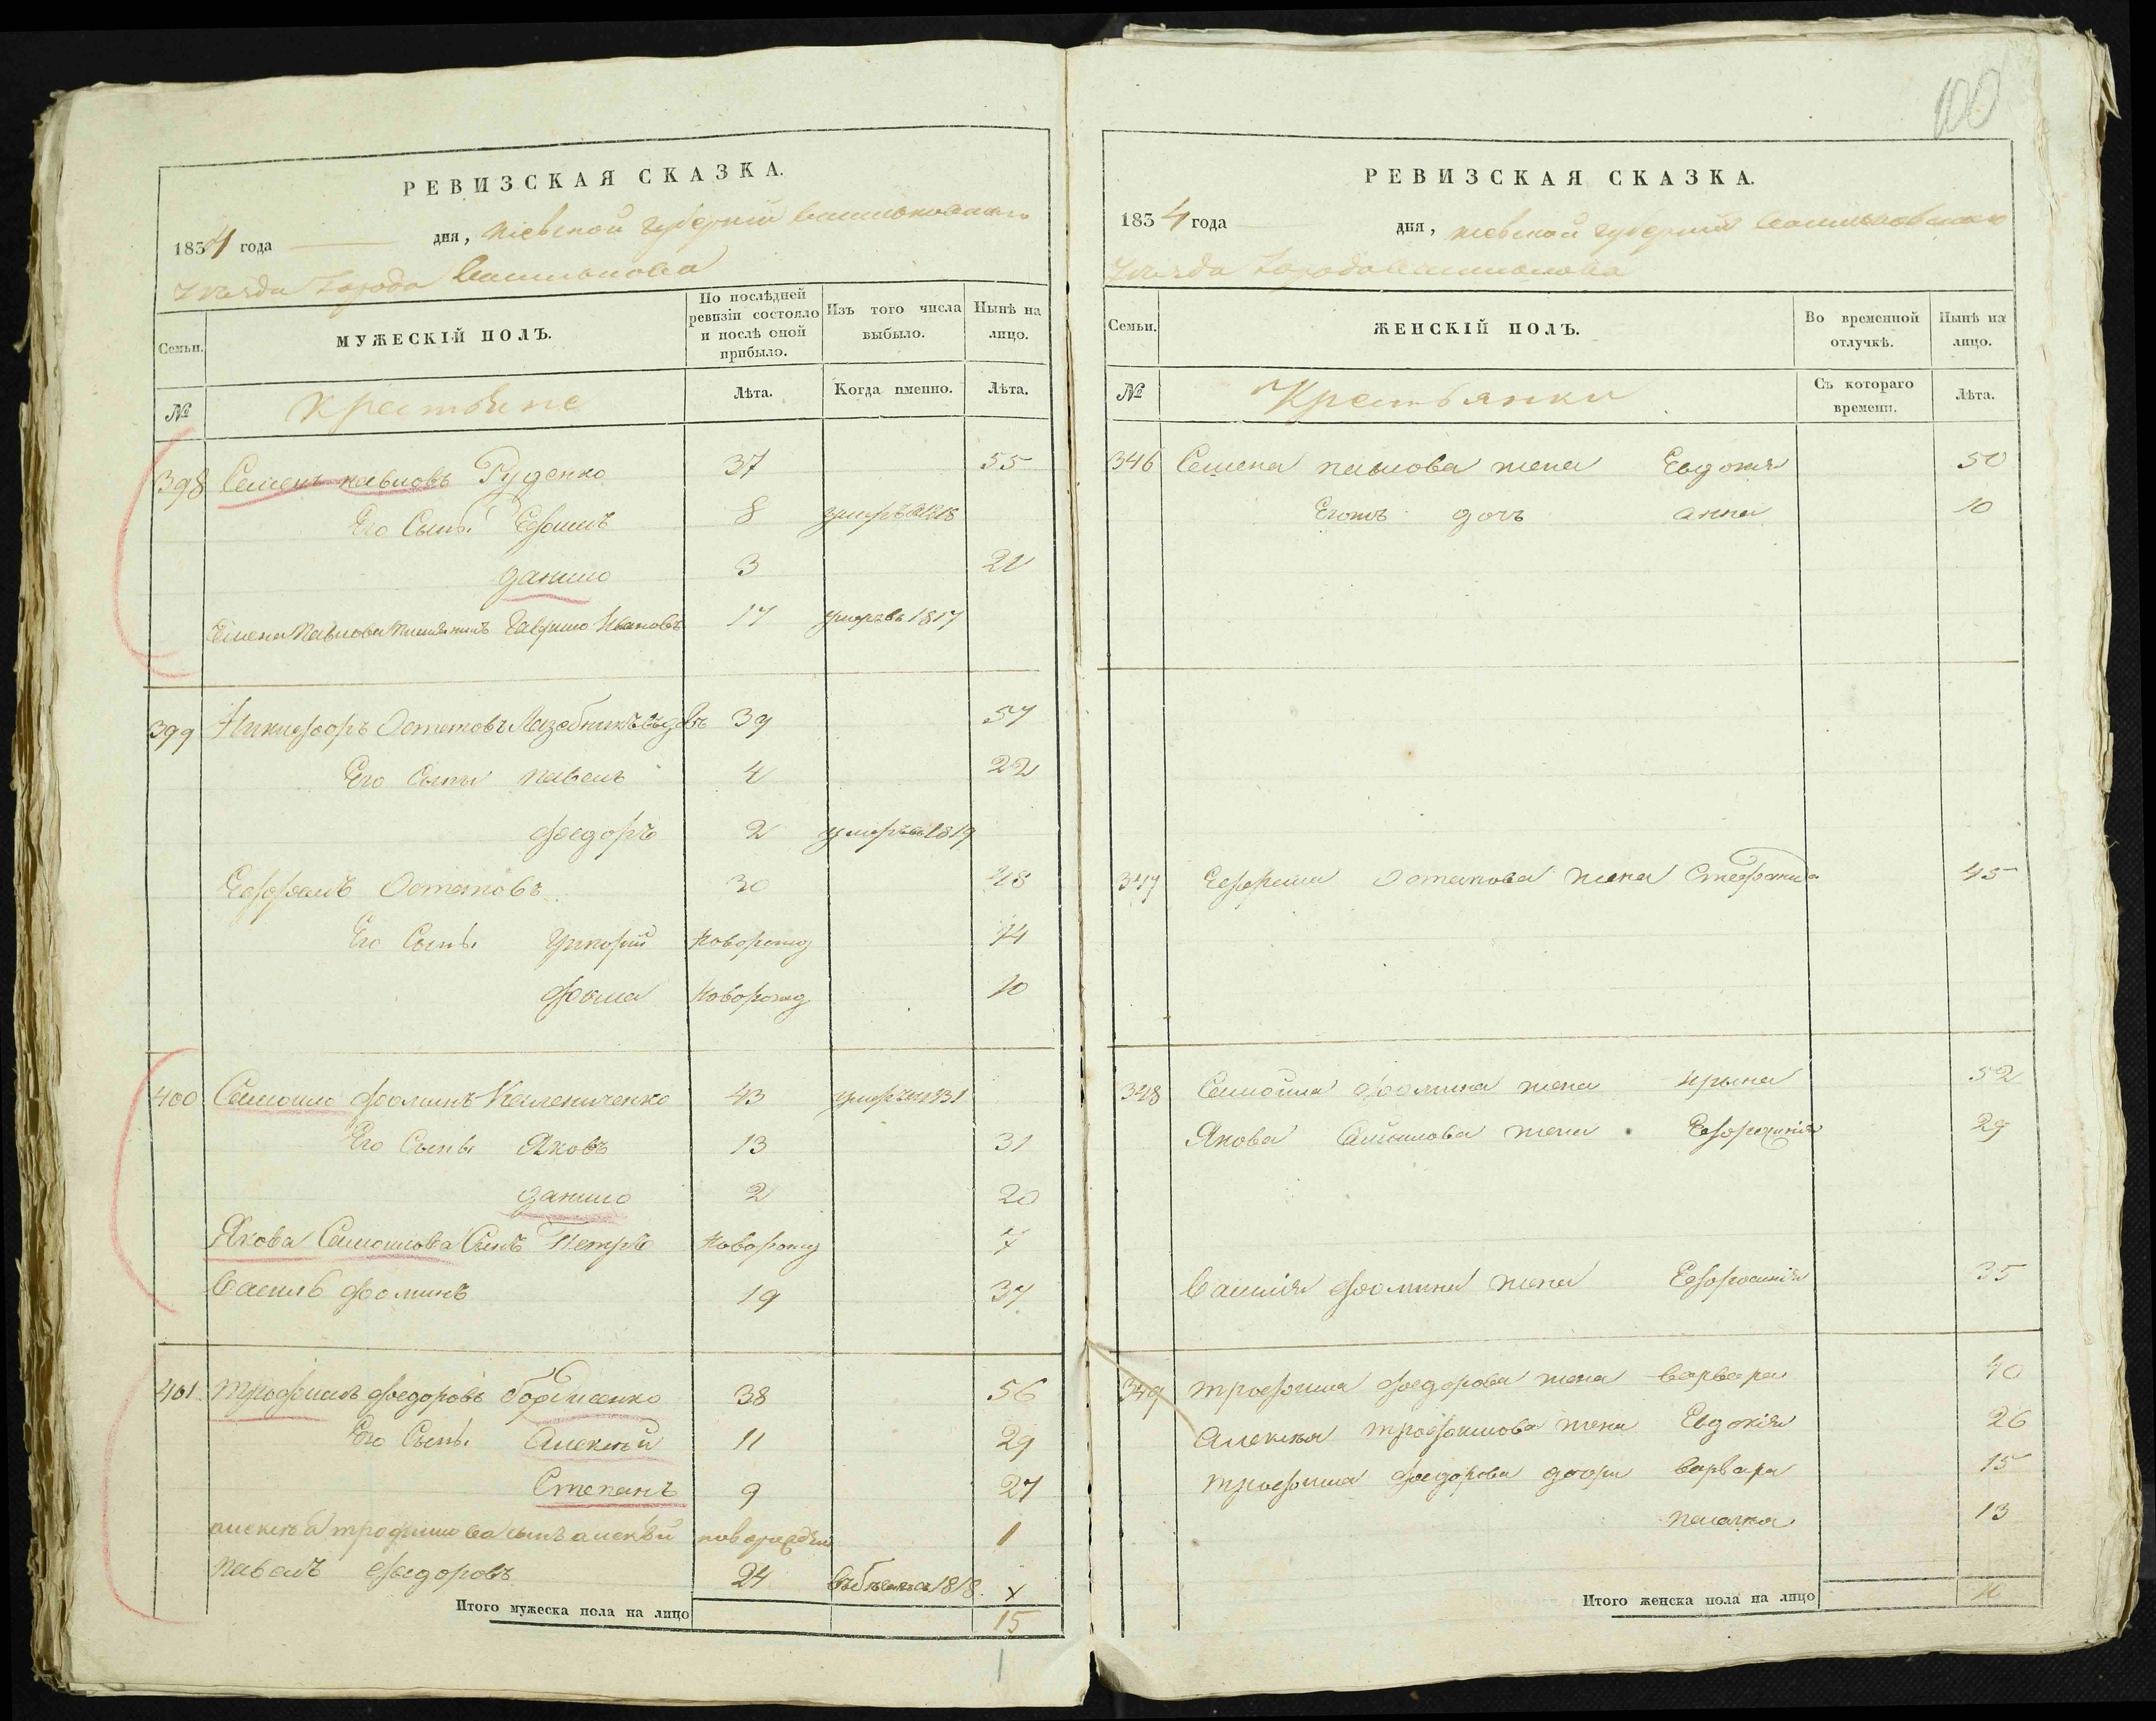 100
РЕВИЗСКАЯ СКАЗКА.
1834 года дня, Кіевской губерніи Васильковскаго
уезда города Василькова
Семьи.
МУЖЕСКІЙ ПОЛЪ.
По послѣдней ревизіи состояло и послѣ оной прибыло.
Изъ того числа выбыло.
Нынѣ на лицо.
№
Крестьяне
Лѣта.
Когда именно.
Лѣта.
398 Семенъ павловъ Руденко 37 55
Его Сынъ. Ефимъ 8 умеръ в 1818
данило 3 21
Семена Павлова племянникъ Гаврило Ивановъ 17 умеръ в 1817
399 Никифоръ Остаповъ Мазебникъ вдовъ 39 57
Его Сыны павелъ 4 22
федоръ 2 умеръ в 1819
Ефремъ Остаповъ 30 48
Его Сынъ Григорий новорожд 14
фома новорожд 10
400 Самойло фоминъ Келениченко 43 умеръ 1831
Его Сынъ Яковъ 13 31
данило 2 20
Якова Самойлова Сынъ Петръ новорожд 7
Василь фоминъ 19 37
401 трофимъ федоровъ Борисенко 38 56
Его Сынъ. Алексѣй 11 29
Степанъ 9 27
алексѣя трофимова сынъ алексѣй новорожден 1
павелъ федоровъ 24 въ бѣгахъ 1818 x
Итого мужеска пола на лицо 15
РЕВИЗСКАЯ СКАЗКА.
1834 года дня, Кіевской губерніи Васильковскаго
уезда города Василькова
Семьи.
ЖЕНСКІЙ ПОЛЪ.
Во временной отлучкѣ.
Нынѣ на лицо.
№
Крестьянки
Съ котораго времени.
Лѣта.
346 Семена павлова жена Евдокія 50
Егожъ дочь анна 10
347 Ефрема Остапова жена Стефанида 45
348 Самойла фомина жена ирина 52
Якова Самойлова жена Ефросинія 29
Василія фомина жена Ефросинія 35
349 трофима федорова жена варвара 40
Алексѣя трофимова жена Евдокія 26
трофима федорова дочери варвара 15
13
Итого женска пола на лицо 10